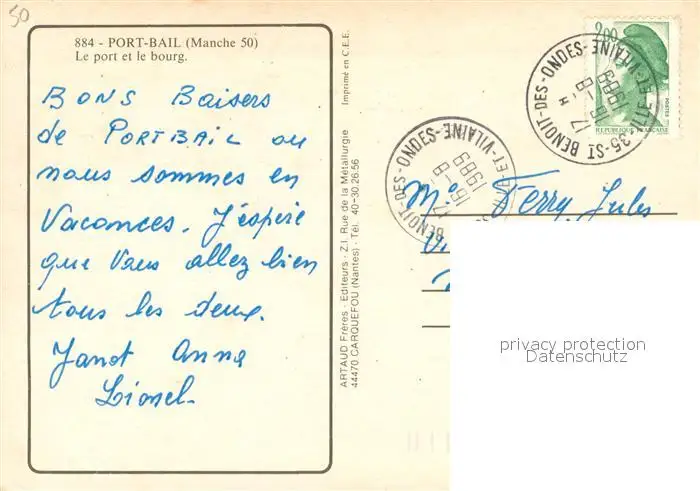 50
884 - PORT-BAIL (Manche 50)
Le port et le bourg.
BONS Baisers
de PORTBAIL ou
nous sommes en
Vacances. J'espère
que Vous allez bien
tous les deux.
Janot Anne
Lionel
Imprimé en C.E.E.
ARTAUD Frères - Editeurs - Z.I. Rue de la Métallurgie
44470 CARQUEFOU (Nantes) - Tél. 40-30.26.56
2,00
POSTES
REPUBLIQUE FRANÇAISE
35-ST BENOIT-DES-ONDES-ILLE-ET-VILAINE
17 H
16 - 8
1989
BENOIT-DES-ONDES-ILLE-ET-VILAINE
16 - 8
1989
Mr Ferry Jules
privacy protection
Datenschutz